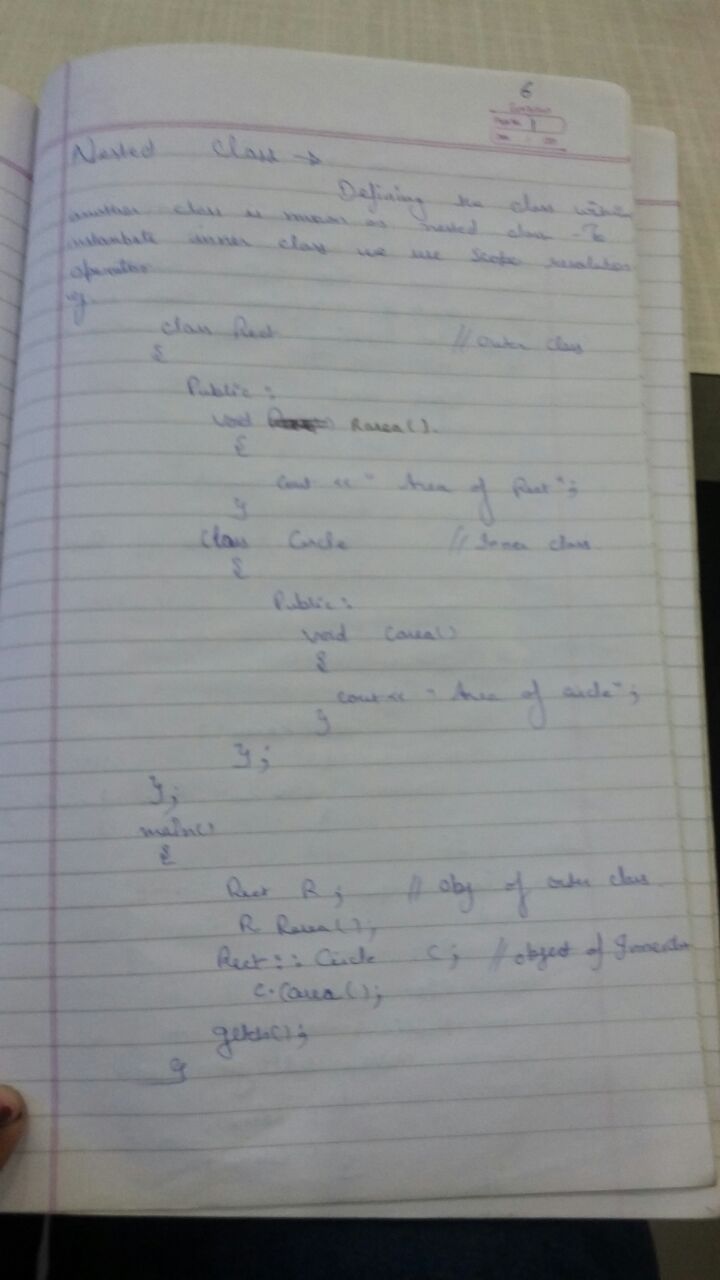 6
Nested Class →
Defining the class within
another class is known as nested class. To
instantiate inner class we use scope resolution
operator.
eg.
class Rect // outer class
{
Public:
void Rarea().
{
cout << " Area of Rect";
}
class Circle // Inner class
{
Public:
void Carea()
{
cout << " Area of circle";
}
};
};
main()
{
Rect R; // obj of outer class
R Rarea();
Rect::Circle C; // object of
C.Carea();
getch();
}